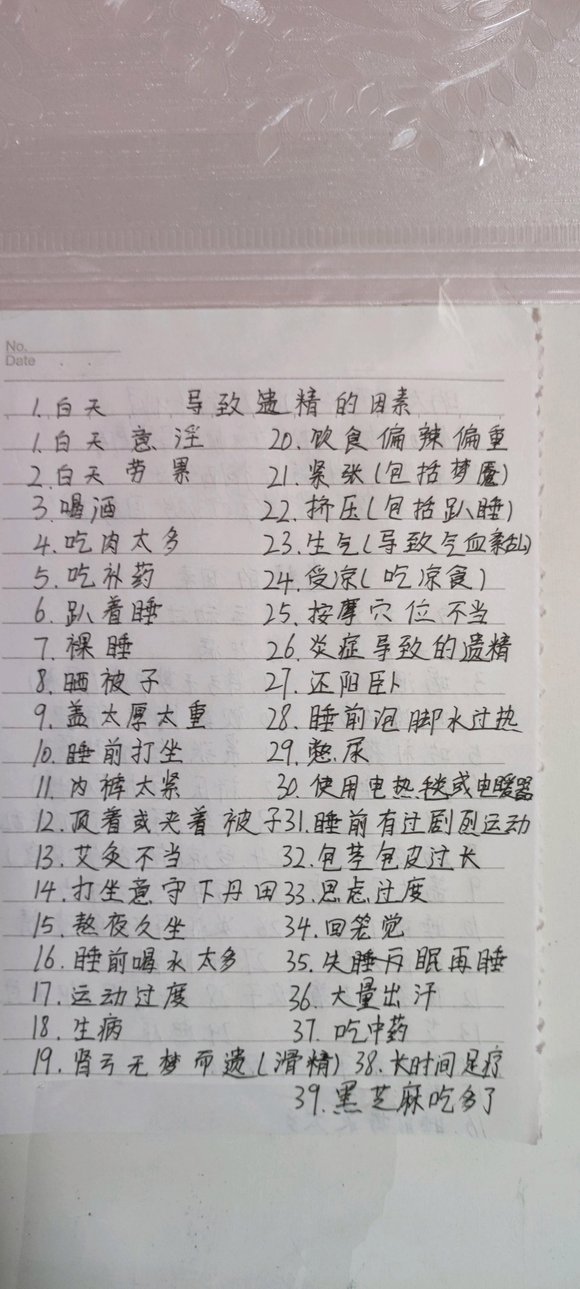 No.
Date
1.白天 导致遗精的因素
1.白天意淫
2.白天劳累
3.喝酒
4.吃肉太多
5.吃补药
6.趴着睡
7.裸睡
8.晒被子
9.盖太厚太重
10.睡前打坐
11.内裤太紧
12.顶着或夹着被子
13.艾灸不当
14.打坐意守下丹田
15.熬夜久坐
16.睡前喝水太多
17.运动过度
18.生病
19.肾亏无梦而遗(滑精)
20.饮食偏辣偏重
21.紧张(包括梦魇)
22.挤压(包括趴睡)
23.生气(导致气血紊乱)
24.受凉(吃凉食)
25.按摩穴位不当
26.炎症导致的遗精
27.还阳卧
28.睡前泡脚水过热
29.憋尿
30.使用电热毯或电暖器
31.睡前有过剧烈运动
32.包茎包皮过长
33.思虑过度
34.回笼觉
35.失眠再睡
36.大量出汗
37.吃中药
38.长时间足疗
39.黑芝麻吃多了